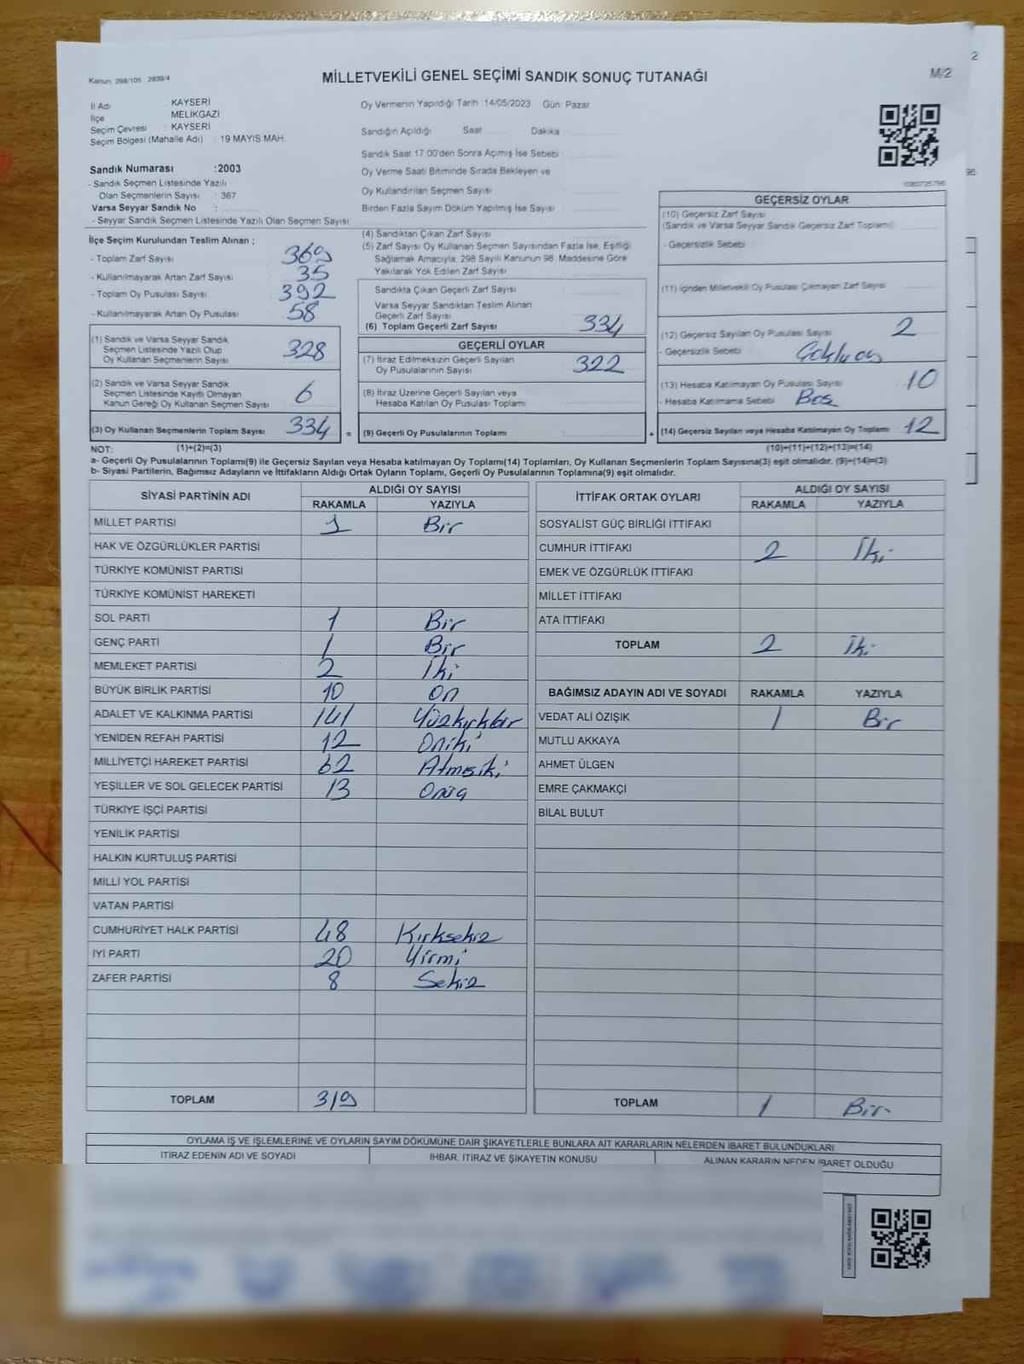 2
Kanun: 298/105 2839/4
MİLLETVEKİLİ GENEL SEÇİMİ SANDIK SONUÇ TUTANAĞI
M/2
İl Adı KAYSERİ
İlçe MELİKGAZİ
Seçim Çevresi KAYSERİ
Seçim Bölgesi (Mahalle Adı) : 19 MAYIS MAH.
Oy Vermenin Yapıldığı Tarih :14/05/2023 Gün: Pazar
Sandığın Açıldığı Saat Dakika
Sandık Saat 17:00'den Sonra Açılmış İse Sebebi
Oy Verme Saati Bitiminde Sırada Bekleyen ve
Oy Kullandırılan Seçmen Sayısı
Birden Fazla Sayım Döküm Yapılmış İse Sayısı
Sandık Numarası :2003
- Sandık Seçmen Listesinde Yazılı
Olan Seçmenlerin Sayısı : 367
Varsa Seyyar Sandık No :
- Seyyar Sandık Seçmen Listesinde Yazılı Olan Seçmen Sayısı
İlçe Seçim Kurulundan Teslim Alınan ;
- Toplam Zarf Sayısı 369
- Kullanılmayarak Artan Zarf Sayısı 35
- Toplam Oy Pusulası Sayısı 392
- Kullanılmayarak Artan Oy Pusulası 58
(1) Sandık ve Varsa Seyyar Sandık
Seçmen Listesinde Yazılı Olup
Oy Kullanan Seçmenlerin Sayısı 328
(2) Sandık ve Varsa Seyyar Sandık
Seçmen Listesinde Kayıtlı Olmayan
Kanun Gereği Oy Kullanan Seçmen Sayısı 6
(3) Oy Kullanan Seçmenlerin Toplam Sayısı 334 =
(4) Sandıktan Çıkan Zarf Sayısı
(5) Zarf Sayısı Oy Kullanan Seçmen Sayısından Fazla İse, Eşitliği
Sağlamak Amacıyla, 298 Sayılı Kanunun 98. Maddesine Göre
Yakılarak Yok Edilen Zarf Sayısı
Sandıkta Çıkan Geçerli Zarf Sayısı
Varsa Seyyar Sandıktan Teslim Alınan
Geçerli Zarf Sayısı
(6) Toplam Geçerli Zarf Sayısı 334
GEÇERLİ OYLAR
(7) İtiraz Edilmeksizin Geçerli Sayılan
Oy Pusulalarının Sayısı 322
(8) İtiraz Üzerine Geçerli Sayılan veya
Hesaba Katılan Oy Pusulası Toplamı
(9) Geçerli Oy Pusulalarının Toplamı +
GEÇERSİZ OYLAR
(10) Geçersiz Zarf Sayısı
(Sandık ve Varsa Seyyar Sandık Geçersiz Zarf Toplamı)
- Geçersizlik Sebebi
(11) İçinden Milletvekili Oy Pusulası Çıkmayan Zarf Sayısı
(12) Geçersiz Sayılan Oy Pusulası Sayısı 2
- Geçersizlik Sebebi
(13) Hesaba Katılmayan Oy Pusulası Sayısı 10
- Hesaba Katılmama Sebebi Boş
(14) Geçersiz Sayılan veya Hesaba Katılmayan Oy Toplamı 12
NOT: (1)+(2)=(3) (10)+(11)+(12)+(13)=(14)
a- Geçerli Oy Pusulalarının Toplamı(9) ile Geçersiz Sayılan veya Hesaba katılmayan Oy Toplamı(14) Toplamları, Oy Kullanan Seçmenlerin Toplam Sayısına(3) eşit olmalıdır. (9)+(14)=(3)
b- Siyasi Partilerin, Bağımsız Adayların ve İttifakların Aldığı Ortak Oyların Toplamı, Geçerli Oy Pusulalarının Toplamına(9) eşit olmalıdır.
SİYASİ PARTİNİN ADI ALDIĞI OY SAYISI
RAKAMLA YAZIYLA
MİLLET PARTİSİ 1 Bir
HAK VE ÖZGÜRLÜKLER PARTİSİ
TÜRKİYE KOMÜNİST PARTİSİ
TÜRKİYE KOMÜNİST HAREKETİ
SOL PARTİ 1 Bir
GENÇ PARTİ 1 Bir
MEMLEKET PARTİSİ 2 İki
BÜYÜK BİRLİK PARTİSİ 10 On
ADALET VE KALKINMA PARTİSİ 141 Yüzkırkbir
YENİDEN REFAH PARTİSİ 12 Oniki
MİLLİYETÇİ HAREKET PARTİSİ 62 Atmışiki
YEŞİLLER VE SOL GELECEK PARTİSİ 13 Onüç
TÜRKİYE İŞÇİ PARTİSİ
YENİLİK PARTİSİ
HALKIN KURTULUŞ PARTİSİ
MİLLİ YOL PARTİSİ
VATAN PARTİSİ
CUMHURİYET HALK PARTİSİ 48 Kırksekiz
İYİ PARTİ 20 Yirmi
ZAFER PARTİSİ 8 Sekiz
TOPLAM 319
İTTİFAK ORTAK OYLARI ALDIĞI OY SAYISI
RAKAMLA YAZIYLA
SOSYALİST GÜÇ BİRLİĞİ İTTİFAKI
CUMHUR İTTİFAKI 2 İki
EMEK VE ÖZGÜRLÜK İTTİFAKI
MİLLET İTTİFAKI
ATA İTTİFAKI
TOPLAM 2 İki
BAĞIMSIZ ADAYIN ADI VE SOYADI RAKAMLA YAZIYLA
VEDAT ALİ ÖZIŞIK 1 Bir
MUTLU AKKAYA
AHMET ÜLGEN
EMRE ÇAKMAKÇI
BİLAL BULUT
TOPLAM 1 Bir
OYLAMA İŞ VE İŞLEMLERİNE VE OYLARIN SAYIM DÖKÜMÜNE DAİR ŞİKAYETLERLE BUNLARA AİT KARARLARIN NELERDEN İBARET BULUNDUKLARI
İTİRAZ EDENİN ADI VE SOYADI İHBAR, İTİRAZ VE ŞİKAYETİN KONUSU ALINAN KARARIN NEDEN İBARET OLDUĞU